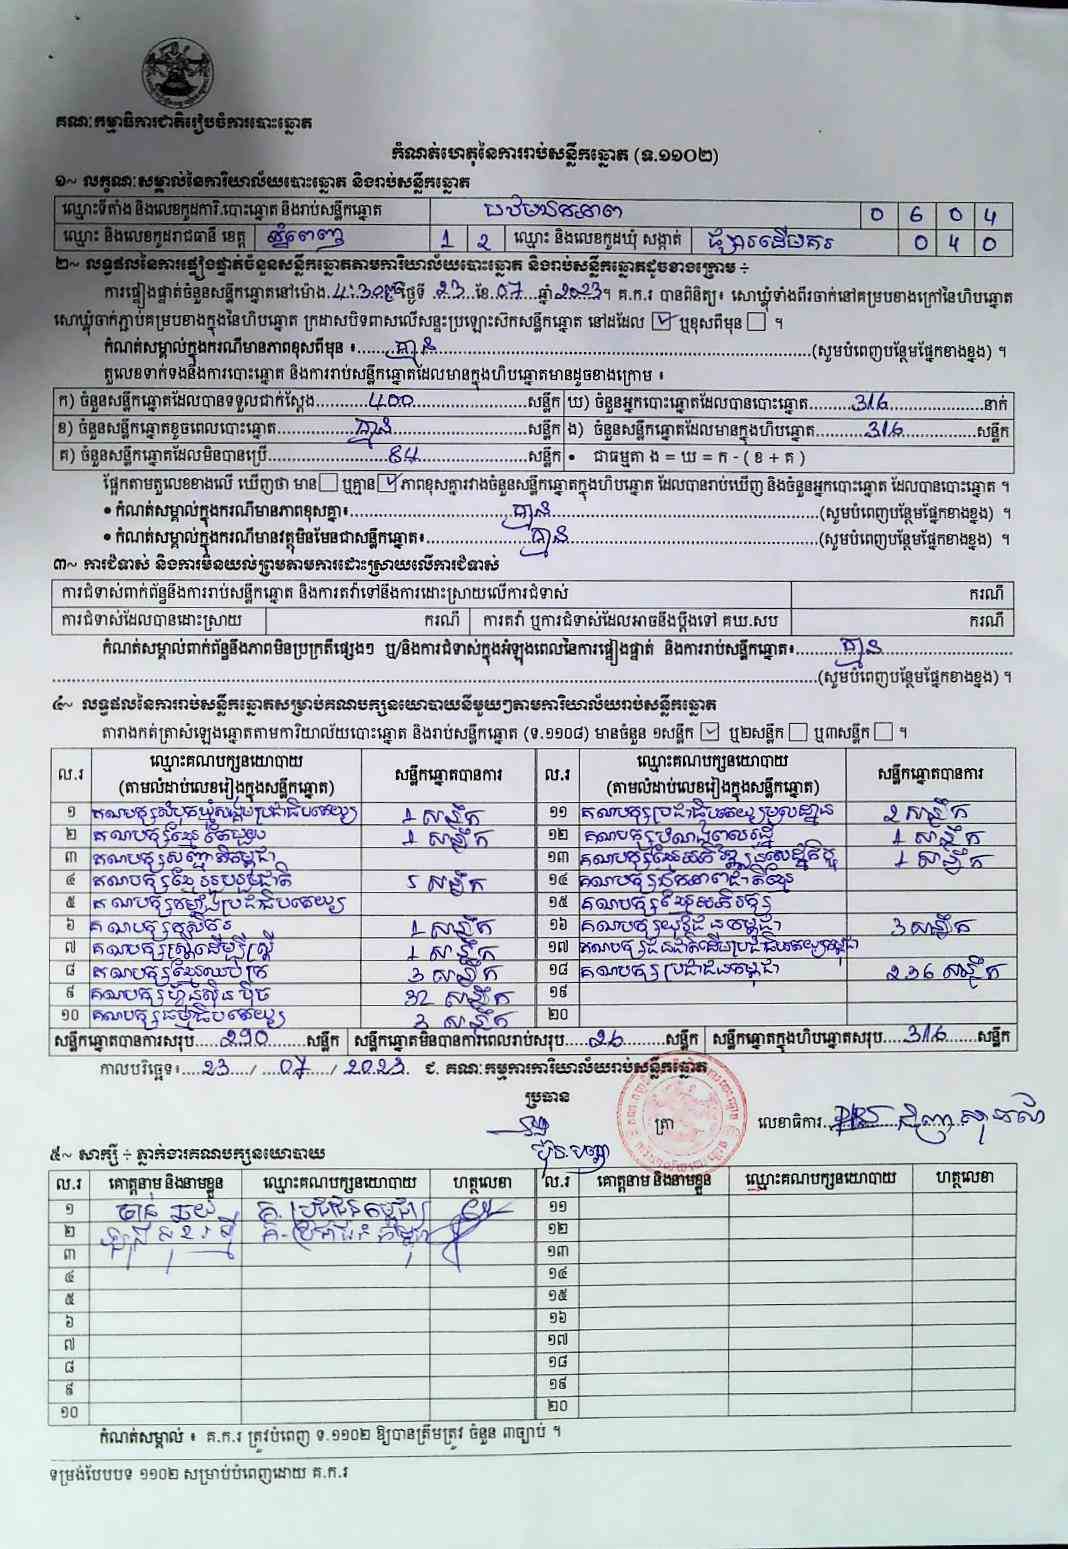 គណៈកម្មាធិការជាតិរៀបចំការបោះឆ្នោត
កំណត់ហេតុនៃការរាប់សន្លឹកឆ្នោត (ទ.១១០២)
១~ លក្ខណៈសម្គាល់នៃការិយាល័យបោះឆ្នោត និងរាប់សន្លឹកឆ្នោត
ឈ្មោះទីតាំង និងលេខកូដការិ.បោះឆ្នោត និងរាប់សន្លឹកឆ្នោត 0 6 0 4
ឈ្មោះ និងលេខកូដរាជធានី ខេត្ត ភ្នំពេញ 1 2 ឈ្មោះ និងលេខកូដឃុំ សង្កាត់ ផ្សារដើមគរ 0 4 0
២~ លទ្ធផលនៃការផ្ទៀងផ្ទាត់ចំនួនសន្លឹកឆ្នោតតាមការិយាល័យបោះឆ្នោត និងរាប់សន្លឹកឆ្នោតដូចខាងក្រោម ÷
ការផ្ទៀងផ្ទាត់ចំនួនសន្លឹកឆ្នោតនៅម៉ោង 4:30 ថ្ងៃទី 23 ខែ 07 ឆ្នាំ 2023។ គ.ក.រ បានពិនិត្យ៖ សោឃ្លុំទាំងពីរចាក់នៅគម្របខាងក្រៅនៃហិបឆ្នោត
សោឃ្លុំចាក់ភ្ជាប់គម្របខាងក្នុងនៃហិបឆ្នោត ក្រដាសបិទពាសលើសន្ទះប្រឡោះសិកសន្លឹកឆ្នោត នៅដដែល ឬខុសពីមុន ។
កំណត់សម្គាល់ក្នុងករណីមានភាពខុសពីមុន ៖ គ្មាន (សូមបំពេញបន្ថែមផ្នែកខាងខ្នង) ។
តួលេខទាក់ទងនឹងការបោះឆ្នោត និងការរាប់សន្លឹកឆ្នោតដែលមានក្នុងហិបឆ្នោតមានដូចខាងក្រោម ៖
ក) ចំនួនសន្លឹកឆ្នោតដែលបានទទួលជាក់ស្តែង 400 សន្លឹក ឃ) ចំនួនអ្នកបោះឆ្នោតដែលបានបោះឆ្នោត 316 នាក់
ខ) ចំនួនសន្លឹកឆ្នោតខូចពេលបោះឆ្នោត គ្មាន សន្លឹក ង) ចំនួនសន្លឹកឆ្នោតដែលមានក្នុងហិបឆ្នោត 316 សន្លឹក
គ) ចំនួនសន្លឹកឆ្នោតដែលមិនបានប្រើ 84 សន្លឹក • ជាធម្មតា ង = ឃ = ក - ( ខ + គ )
ផ្អែកតាមតួលេខខាងលើ ឃើញថា មាន ឬគ្មាន ភាពខុសគ្នារវាងចំនួនសន្លឹកឆ្នោតក្នុងហិបឆ្នោត ដែលបានរាប់ឃើញ និងចំនួនអ្នកបោះឆ្នោត ដែលបានបោះឆ្នោត ។
• កំណត់សម្គាល់ក្នុងករណីមានភាពខុសគ្នា៖ គ្មាន (សូមបំពេញបន្ថែមផ្នែកខាងខ្នង) ។
• កំណត់សម្គាល់ក្នុងករណីមានវត្ថុមិនមែនជាសន្លឹកឆ្នោត៖ គ្មាន (សូមបំពេញបន្ថែមផ្នែកខាងខ្នង) ។
៣~ ការជំទាស់ និងការមិនយល់ព្រមតាមការដោះស្រាយលើការជំទាស់
ការជំទាស់ពាក់ព័ន្ធនឹងការរាប់សន្លឹកឆ្នោត និងការតវ៉ាទៅនឹងការដោះស្រាយលើការជំទាស់ ករណី
ការជំទាស់ដែលបានដោះស្រាយ ករណី ការតវ៉ា ឬការជំទាស់ដែលអាចនឹងប្តឹងទៅ គឃ.សប ករណី
កំណត់សម្គាល់ពាក់ព័ន្ធនឹងភាពមិនប្រក្រតីផ្សេងៗ ឬ/និងការជំទាស់ក្នុងអំឡុងពេលនៃការផ្ទៀងផ្ទាត់ និងការរាប់សន្លឹកឆ្នោត៖ គ្មាន
(សូមបំពេញបន្ថែមផ្នែកខាងខ្នង) ។
៤~ លទ្ធផលនៃការរាប់សន្លឹកឆ្នោតសម្រាប់គណបក្សនយោបាយនីមួយៗតាមការិយាល័យរាប់សន្លឹកឆ្នោត
តារាងកត់ត្រាសំឡេងឆ្នោតតាមការិយាល័យបោះឆ្នោត និងរាប់សន្លឹកឆ្នោត (ទ.១១០៨) មានចំនួន ១សន្លឹក ឬ២សន្លឹក ឬ៣សន្លឹក ។
ល.រ ឈ្មោះគណបក្សនយោបាយ (តាមលំដាប់លេខរៀងក្នុងសន្លឹកឆ្នោត) សន្លឹកឆ្នោតបានការ ល.រ ឈ្មោះគណបក្សនយោបាយ (តាមលំដាប់លេខរៀងក្នុងសន្លឹកឆ្នោត) សន្លឹកឆ្នោតបានការ
១ គណបក្សសំបុកឃ្មុំសង្គមប្រជាធិបតេយ្យ 1 សន្លឹក ១១ គណបក្សប្រជាធិបតេយ្យមូលដ្ឋាន 2 សន្លឹក
២ គណបក្សខ្មែរតែមួយ 1 សន្លឹក ១២ 1 សន្លឹក
៣ គណបក្សសញ្ជាតិកម្ពុជា ១៣ គណបក្សខ្មែរអភិវឌ្ឍន៍សេដ្ឋកិច្ច 1 សន្លឹក
៤ គណបក្សខ្មែររួបរួមជាតិ 5 សន្លឹក ១៤ គណបក្សឯកភាពជាតិខ្មែរ
៥ គណបក្សកម្លាំងប្រជាធិបតេយ្យ ១៥ គណបក្សខ្មែរអភិរក្ស
៦ គណបក្សកសិករ 1 សន្លឹក ១៦ គណបក្សយុវជនកម្ពុជា 3 សន្លឹក
៧ គណបក្សស្ត្រីដើម្បីស្ត្រី 1 សន្លឹក ១៧ គណបក្សជនជាតិដើមប្រជាធិបតេយ្យកម្ពុជា
៨ គណបក្សខ្មែរឈប់ក្រ 3 សន្លឹក ១៨ គណបក្សប្រជាជនកម្ពុជា 236 សន្លឹក
៩ គណបក្សហ៊្វុនស៊ិនប៉ិច 32 សន្លឹក ១៩
១០ គណបក្សធម្មាធិបតេយ្យ 3 សន្លឹក ២០
សន្លឹកឆ្នោតបានការសរុប 290 សន្លឹក សន្លឹកឆ្នោតមិនបានការពេលរាប់សរុប 26 សន្លឹក សន្លឹកឆ្នោតក្នុងហិបឆ្នោតសរុប 316 សន្លឹក
កាលបរិច្ឆេទ៖ 23 / 07 / 2023 ជ. គណៈកម្មការការិយាល័យរាប់សន្លឹកឆ្នោត
ប្រធាន
ត្រា លេខាធិការ
៥~ សាក្សី ÷ ភ្នាក់ងារគណបក្សនយោបាយ
ល.រ គោត្តនាម និងនាមខ្លួន ឈ្មោះគណបក្សនយោបាយ ហត្ថលេខា ល.រ គោត្តនាម និងនាមខ្លួន ឈ្មោះគណបក្សនយោបាយ ហត្ថលេខា
១ គ. ប្រជាជនកម្ពុជា ១១
២ គ. ប្រជាជនកម្ពុជា ១២
៣ ១៣
៤ ១៤
៥ ១៥
៦ ១៦
៧ ១៧
៨ ១៨
៩ ១៩
១០ ២០
កំណត់សម្គាល់ ៖ គ.ក.រ ត្រូវបំពេញ ទ.១១០២ ឱ្យបានត្រឹមត្រូវ ចំនួន ៣ច្បាប់ ។
ទម្រង់បែបបទ ១១០២ សម្រាប់បំពេញដោយ គ.ក.រ